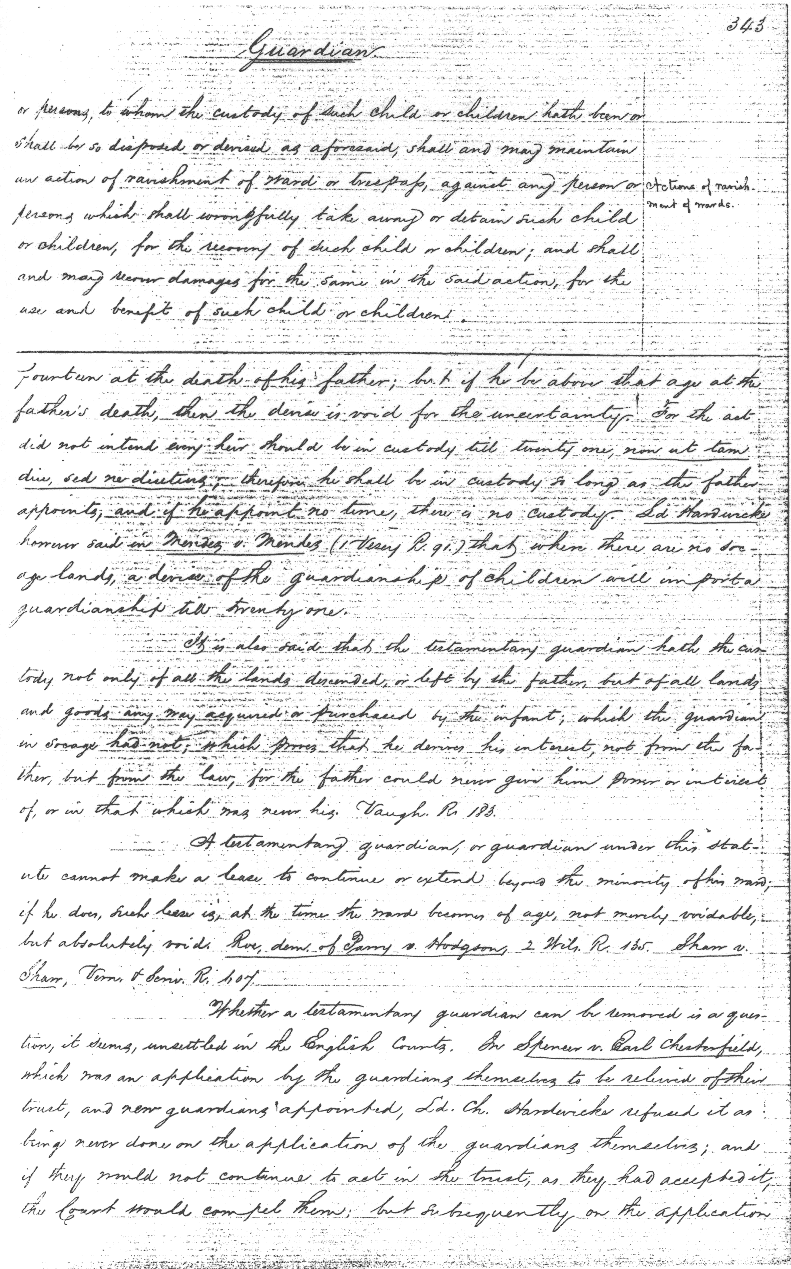 343
Guardian.
or persons, to whom the custody of such child or children hath been or
shall be so disposed or devised as aforesaid, shall and may maintain
an action of ravishment of ward or trespass, against any person or
Actions of ravish-
ment of wards.
persons which shall wrongfully take away or detain such child
or children, for the recovery of such child or children; and shall
and may recover damages for the same in the said action, for the
use and benefit of such child or children.
fourteen at the death of his father; but if he be above that age at the
father's death, then the devise is void for the uncertainty. For the act
did not intend every heir should be in custody till twenty one, non ut tam
diu, sed ne diutius; therefore he shall be in custody so long as the father
appoints; and if he appoint no time, there is no custody. Ld Hardwicke
however said in Mendez v. Mendez (1 Vesey R. 91.) that where there are no soc-
age lands, a devise of the guardianship of children will import a
guardianship till twenty one.
It is also said that the testamentary guardian hath the cus-
tody not only of all the lands descended, or left by the father, but of all lands
and goods any way acquired or purchased by the infant; which the guardian
in socage had not; which proves that he derives his interest, not from the fa-
ther, but from the law, for the father could never give him power or interest
of, or in that which was never his. Vaugh. R. 183.
A testamentary guardian, or guardian under this stat-
ute cannot make a lease to continue or extend beyond the minority of his ward;
if he does, such lease is, at the time the ward becomes of age, not merely voidable,
but absolutely void. Roe, dem. of Parry v. Hodgson, 2 Wils. R. 135. Shaw v.
Shaw, Vern. & Scriv. R. 607.
Whether a testamentary guardian can be removed is a ques-
tion, it seems, unsettled in the English Courts. In Spencer v. Earl Chesterfield,
which was an application by the guardians themselves to be relieved of their
trust, and new guardians appointed, Ld. Ch. Hardwicke refused it as
being never done on the application of the guardians themselves; and
if they would not continue to act in the trust, as they had accepted it,
the Court would compel them; but subsequently on the application